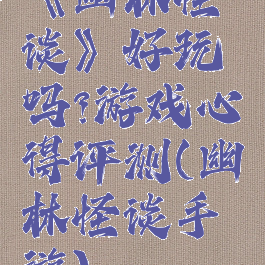 《幽林怪
谈》好玩
吗?游戏心
得评测(幽
林怪谈手
游)